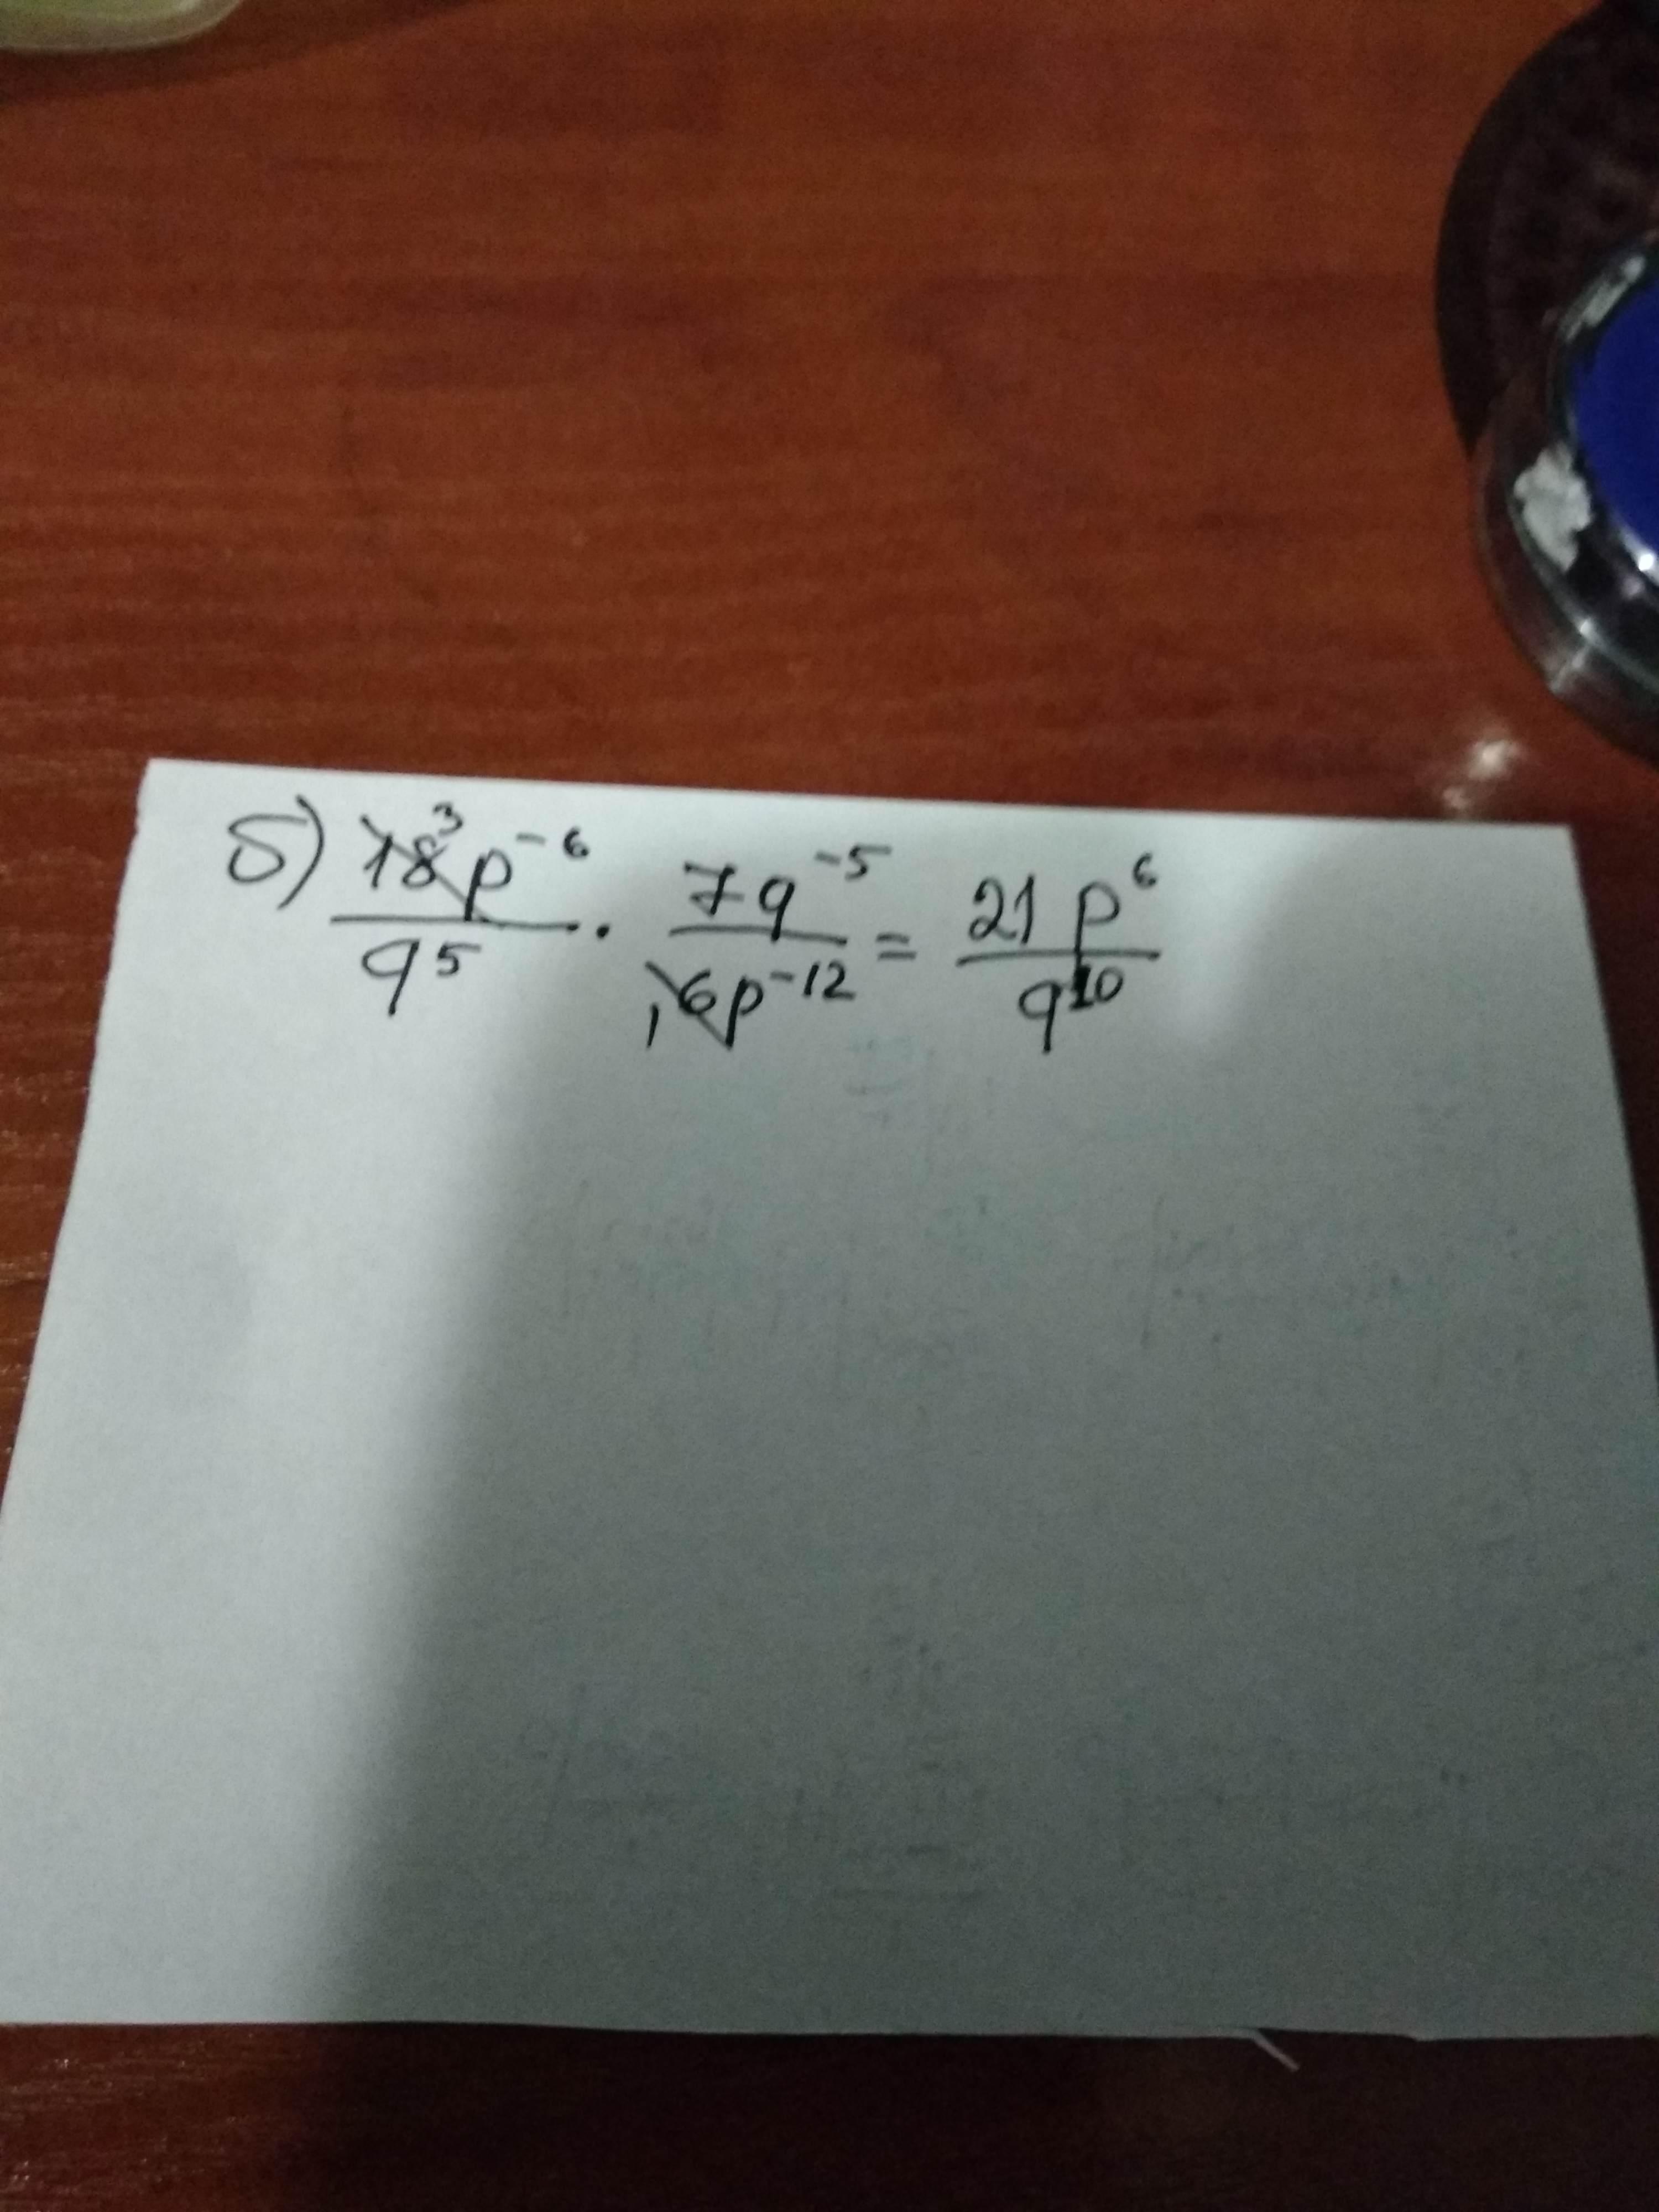 б) 18³p⁻⁶/q⁵ · 7q⁻⁵/₁6p⁻¹² = 21p⁶/q¹⁰